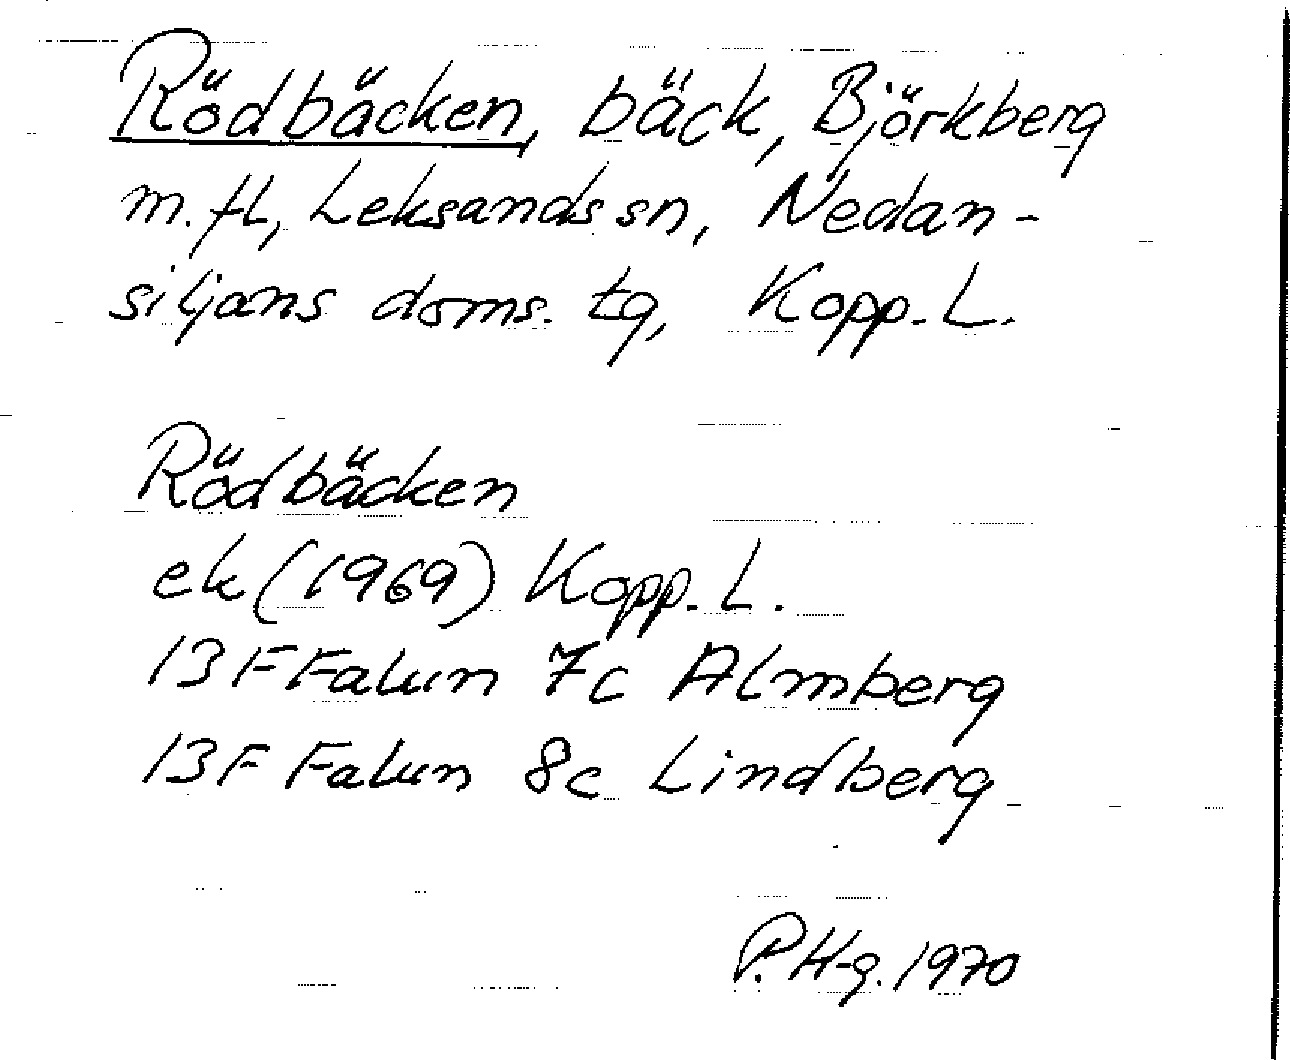 Rödbäcken, bäck, Björkberg
m.fl., Leksands sn, Nedan-
siljans doms. tg, Kopp. L.
Rödbäcken
ek (1969) Kopp. L.
13F Falun 7c Almberg
13F Falun 8c Lindberg
P. H-g. 1970